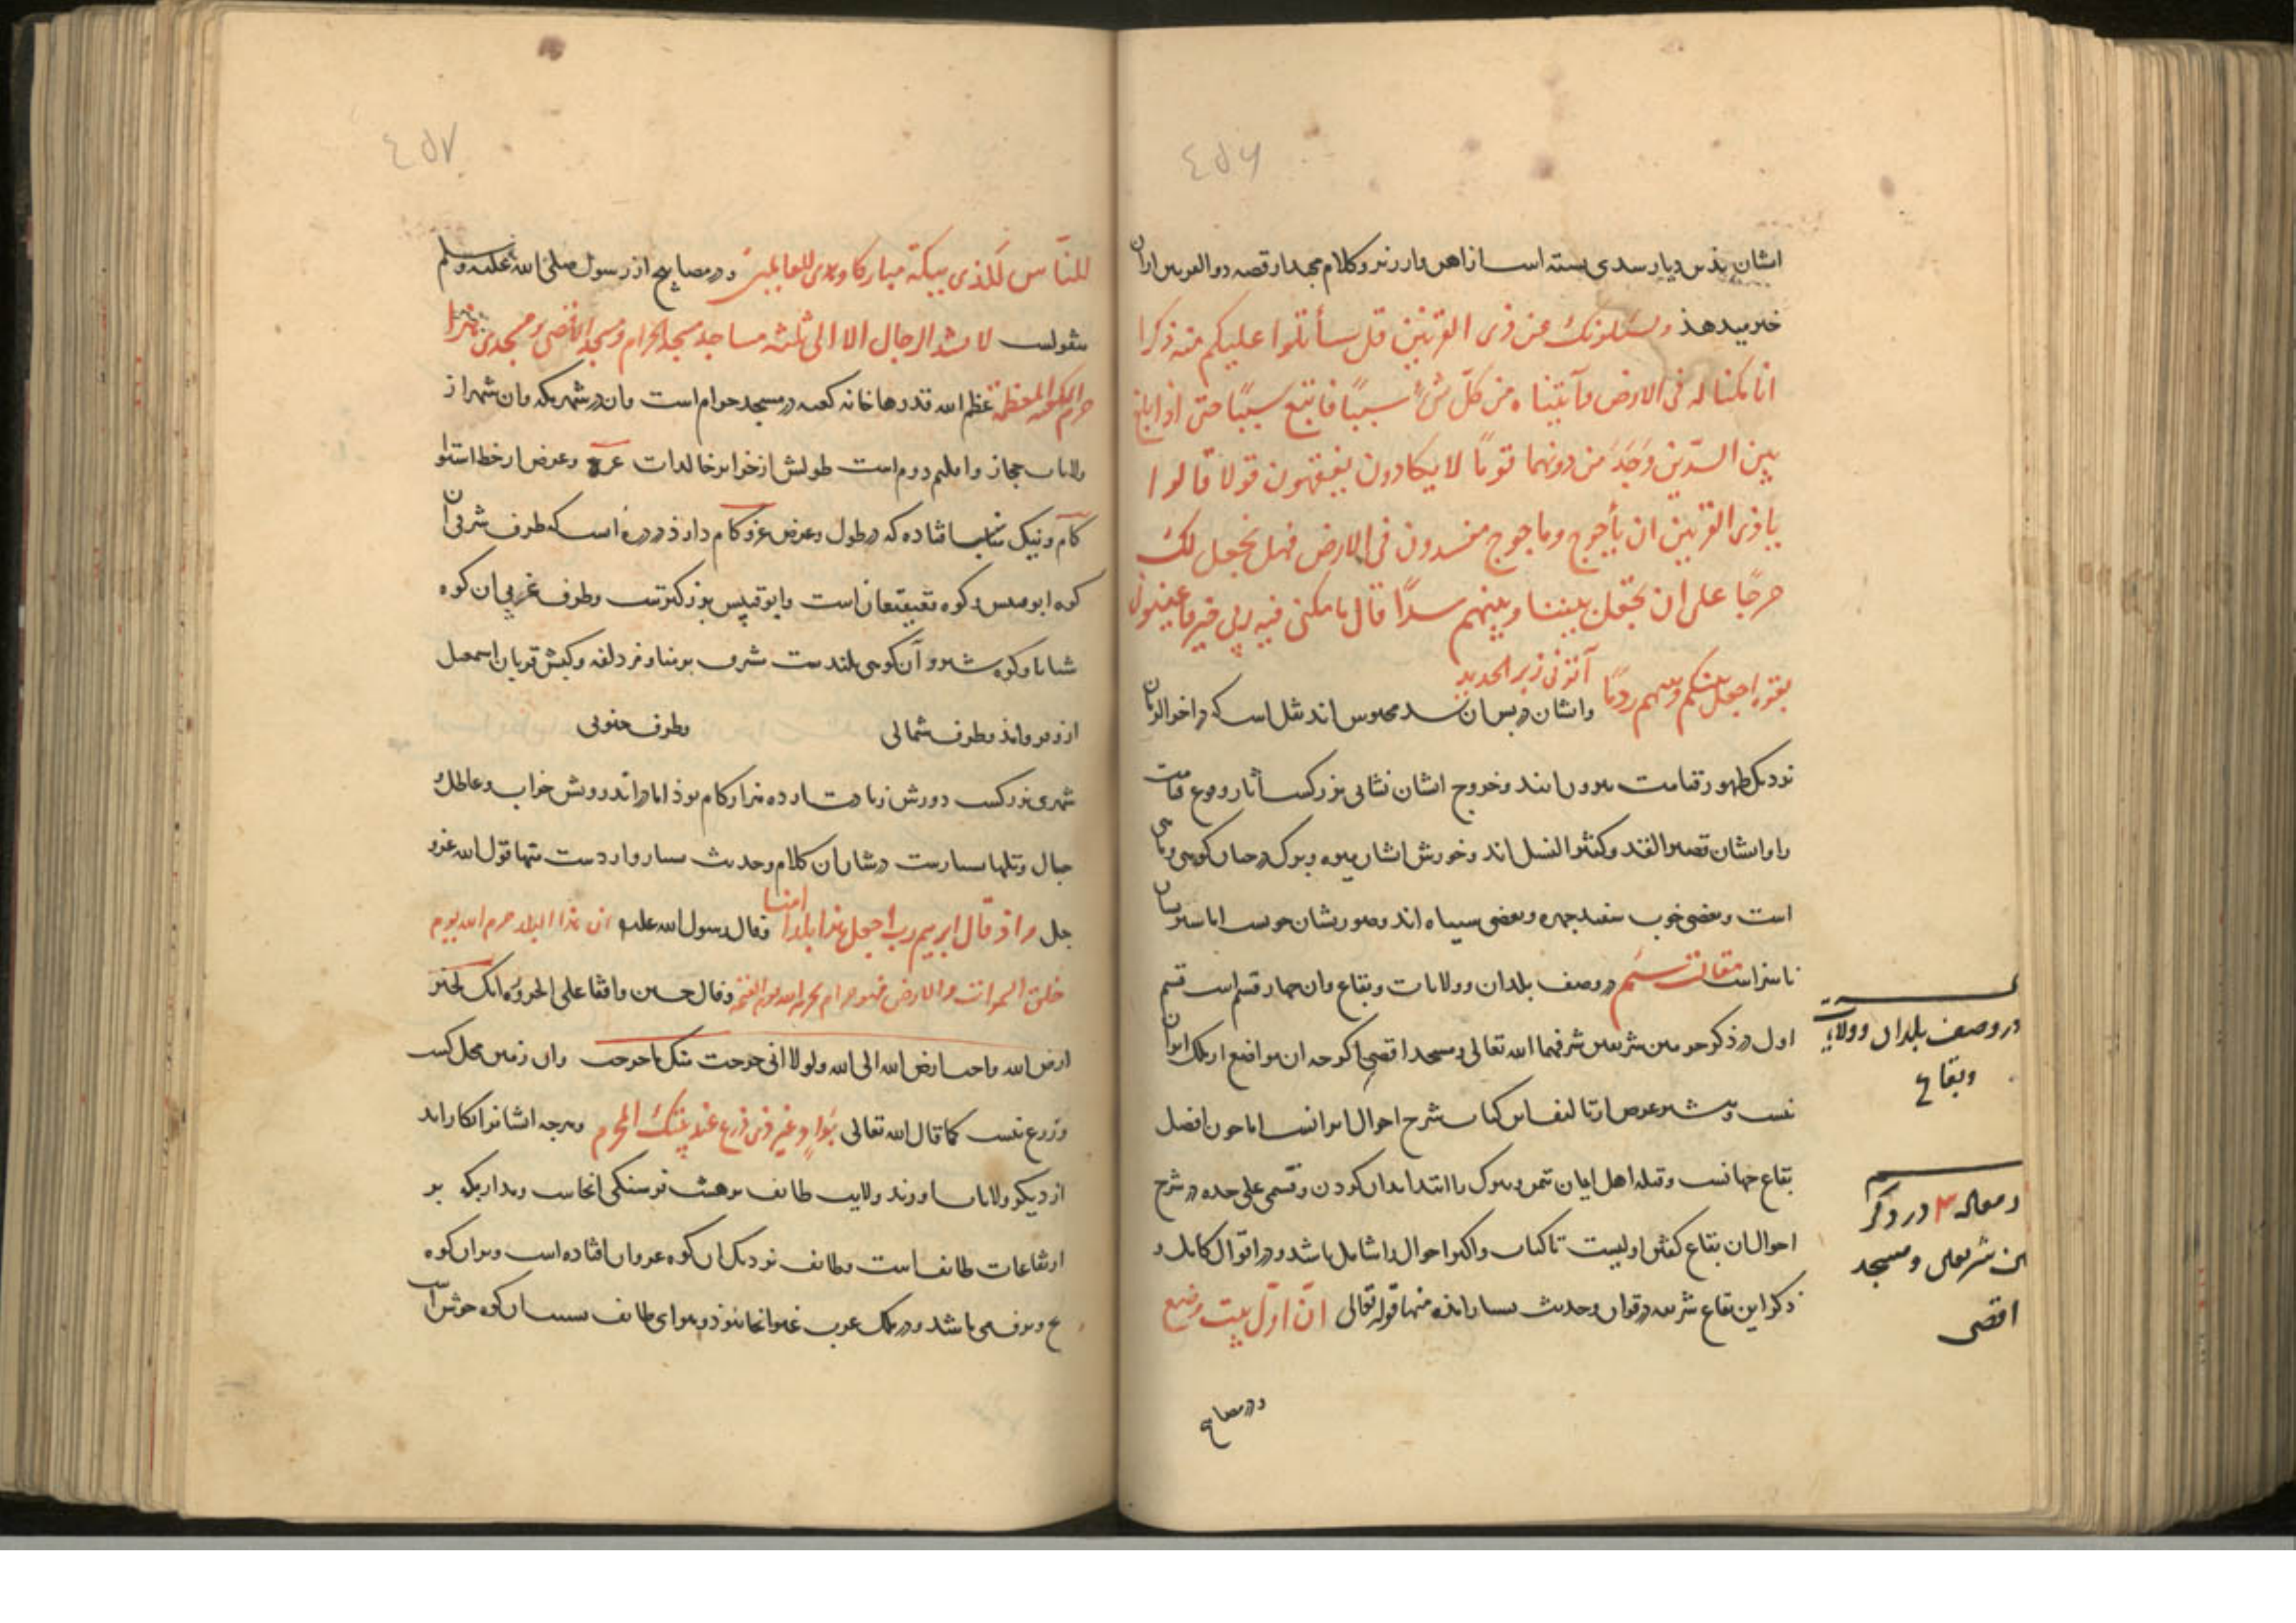 ٤٥٦
ایشان بذین دیار سدی بسته است از اهن و ارزیز و کلام مجید از قصه ذوالقرنین از ان
خبر میدهذ و یسئلونك عن ذی القرنین قل سأتلوا علیكم منه ذكرا
انا مكنا له فی الارض و آتیناه من كلّ شئ سببًا فاتبع سببًا حتی اذا بلغ
بین السدّین وَجَدَ من دونهما قومًا لا یكادون یفقهون قولا قالوا
یا ذی القرنین ان یأجوج و ماجوج مفسدون فی الارض فهل نجعل لك
خرجًا علی ان تجعل بیننا و بینهم سدًا قال ما مكنی فیه ربی خیر فاعینونی
بقوة اجعل بینكم و بینهم ردمًا آتونی زبر الحدید و ایشان در پس ان سد محبوس اند نقل است که در اخر الزمان
نزدیک ظهور قیامت بیرون ایند و خروج ایشان نشانی بزرگست از اثار وقوع قیامت
را و ایشان قصیر القد و کثیر النسل اند و خورش ایشان میوه و برک درختان کوهی و
است و بعضی خوب سفید چهره و بعضی سیاه اند و صورتشان خوبست اما سیرتشان
ناسزاست مقالت سیم در وصف بلدان و ولایات و بقاع و ان چهار قسم است قسم
اول در ذکر حرمین شریفین شرفهما الله تعالی و مسجد اقصی اگر چه ان مواضع از ملک ایران
نیست و بیشتر غرض از تالیف این کتاب شرح احوال ایرانست اما چون افضل
بقاع جهانست و قبله اهل ایمان تیمن و تبرک را ابتدا بدان کردن و قسمی علی حده در شرح
احوال ان بقاع گفتن اولیست تا کتاب اکثر احوال را شامل باشد و در اقوال کامل و
ذکر این بقاع شریفه در قران و حدیث بسیار امذه منها قوله تعالی انّ اوّل بیت وضع
در مصابیح
در وصف بلدان و ولایات
و بقاع
در ذکر
شریفین و مسجد
اقصی
٤٥٧
للنّاس للذی ببكة مباركا و هدی للعالمین و در مصابیح از رسول صلی الله علیه و سلم
منقولست لا تشد الرحال الا الی ثلثه مساجد مسجد الحرام و مسجد الاقصی و مسجدی هذا
حرم مكة المعظمة عظم الله قدرها خانه کعبه در مسجد حرام است و ان در شهر مکه و ان شهر از
ولایات حجاز و اقلیم دوم است طولش از جزایر خالدات و عرض از خط استوا
کام و نیک افتاده که در طول و عرض کام دارذ در دره است که طرف شرقی ان
کوه ابوقبیس و کوه قعیقعان است و ابوقبیس بزرگترست و طرف غربی ان کوه
و کوه و آن کوهی بلندست مشرف بر منا و مزدلفه و کبش قربان اسمعیل
ازو فرو امذ و طرف شمالی و طرف جنوبی
شهری بزرگست دورش زیادت از ده هزار کام بوذ اما در اندرونش خراب و عاطل و
جبال و تلها بسیارست در شان ان کلام و حدیث بسیار واردست منها قول الله عز و
جل و اذ قال ابرهیم رب اجعل هذا بلدا امنا و قال رسول الله علیه ان هذا البلد حرم الله یوم
خلق السموات و الارض فهو حرام بحرمة الله یوم القیمة و قال حین واقفا علی الحزورة انك لخیر
ارض الله و احب ارض الله الی الله و لولا انی خرجت منك ما خرجت و ان زمین محل کشت
و زرع نیست کما قال الله تعالی بوادٍ غیر ذی زرع عند بیتك المحرم و هر چه ایشانرا بکار اید
از دیگر ولایات اورند و ولایت طایف بر هشت فرسنگی انجاست و مدار مکه بر
ارتفاعات طایف است و طایف نزدیک ان کوه غزوان افتاده است و بران کوه
یخ و برف می باشد و در ملک عرب غیر انجا نبوذ و هوای طایف بسبب ان کوه خوش است